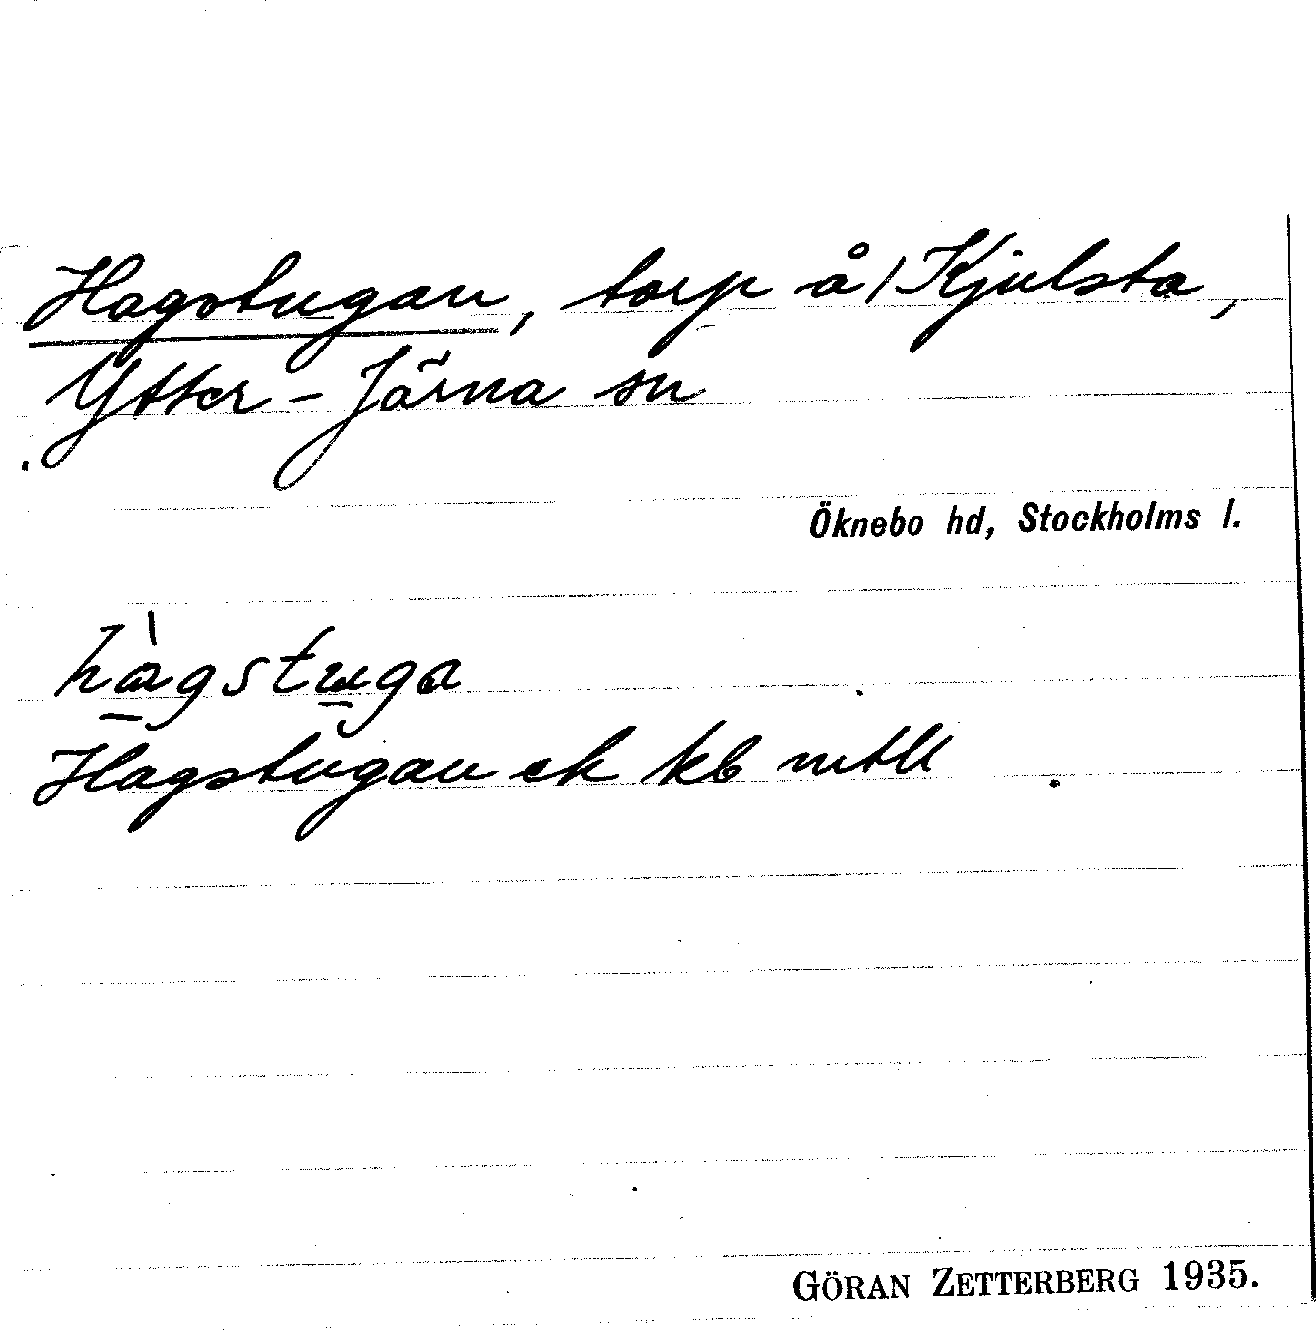 Hagstugan, torp å/Kjulsta,
Ytter-Järna sn
Öknebo hd, Stockholms l.
hàgstuga
Hagstugan ek kb mtll
GÖRAN ZETTERBERG 1935.